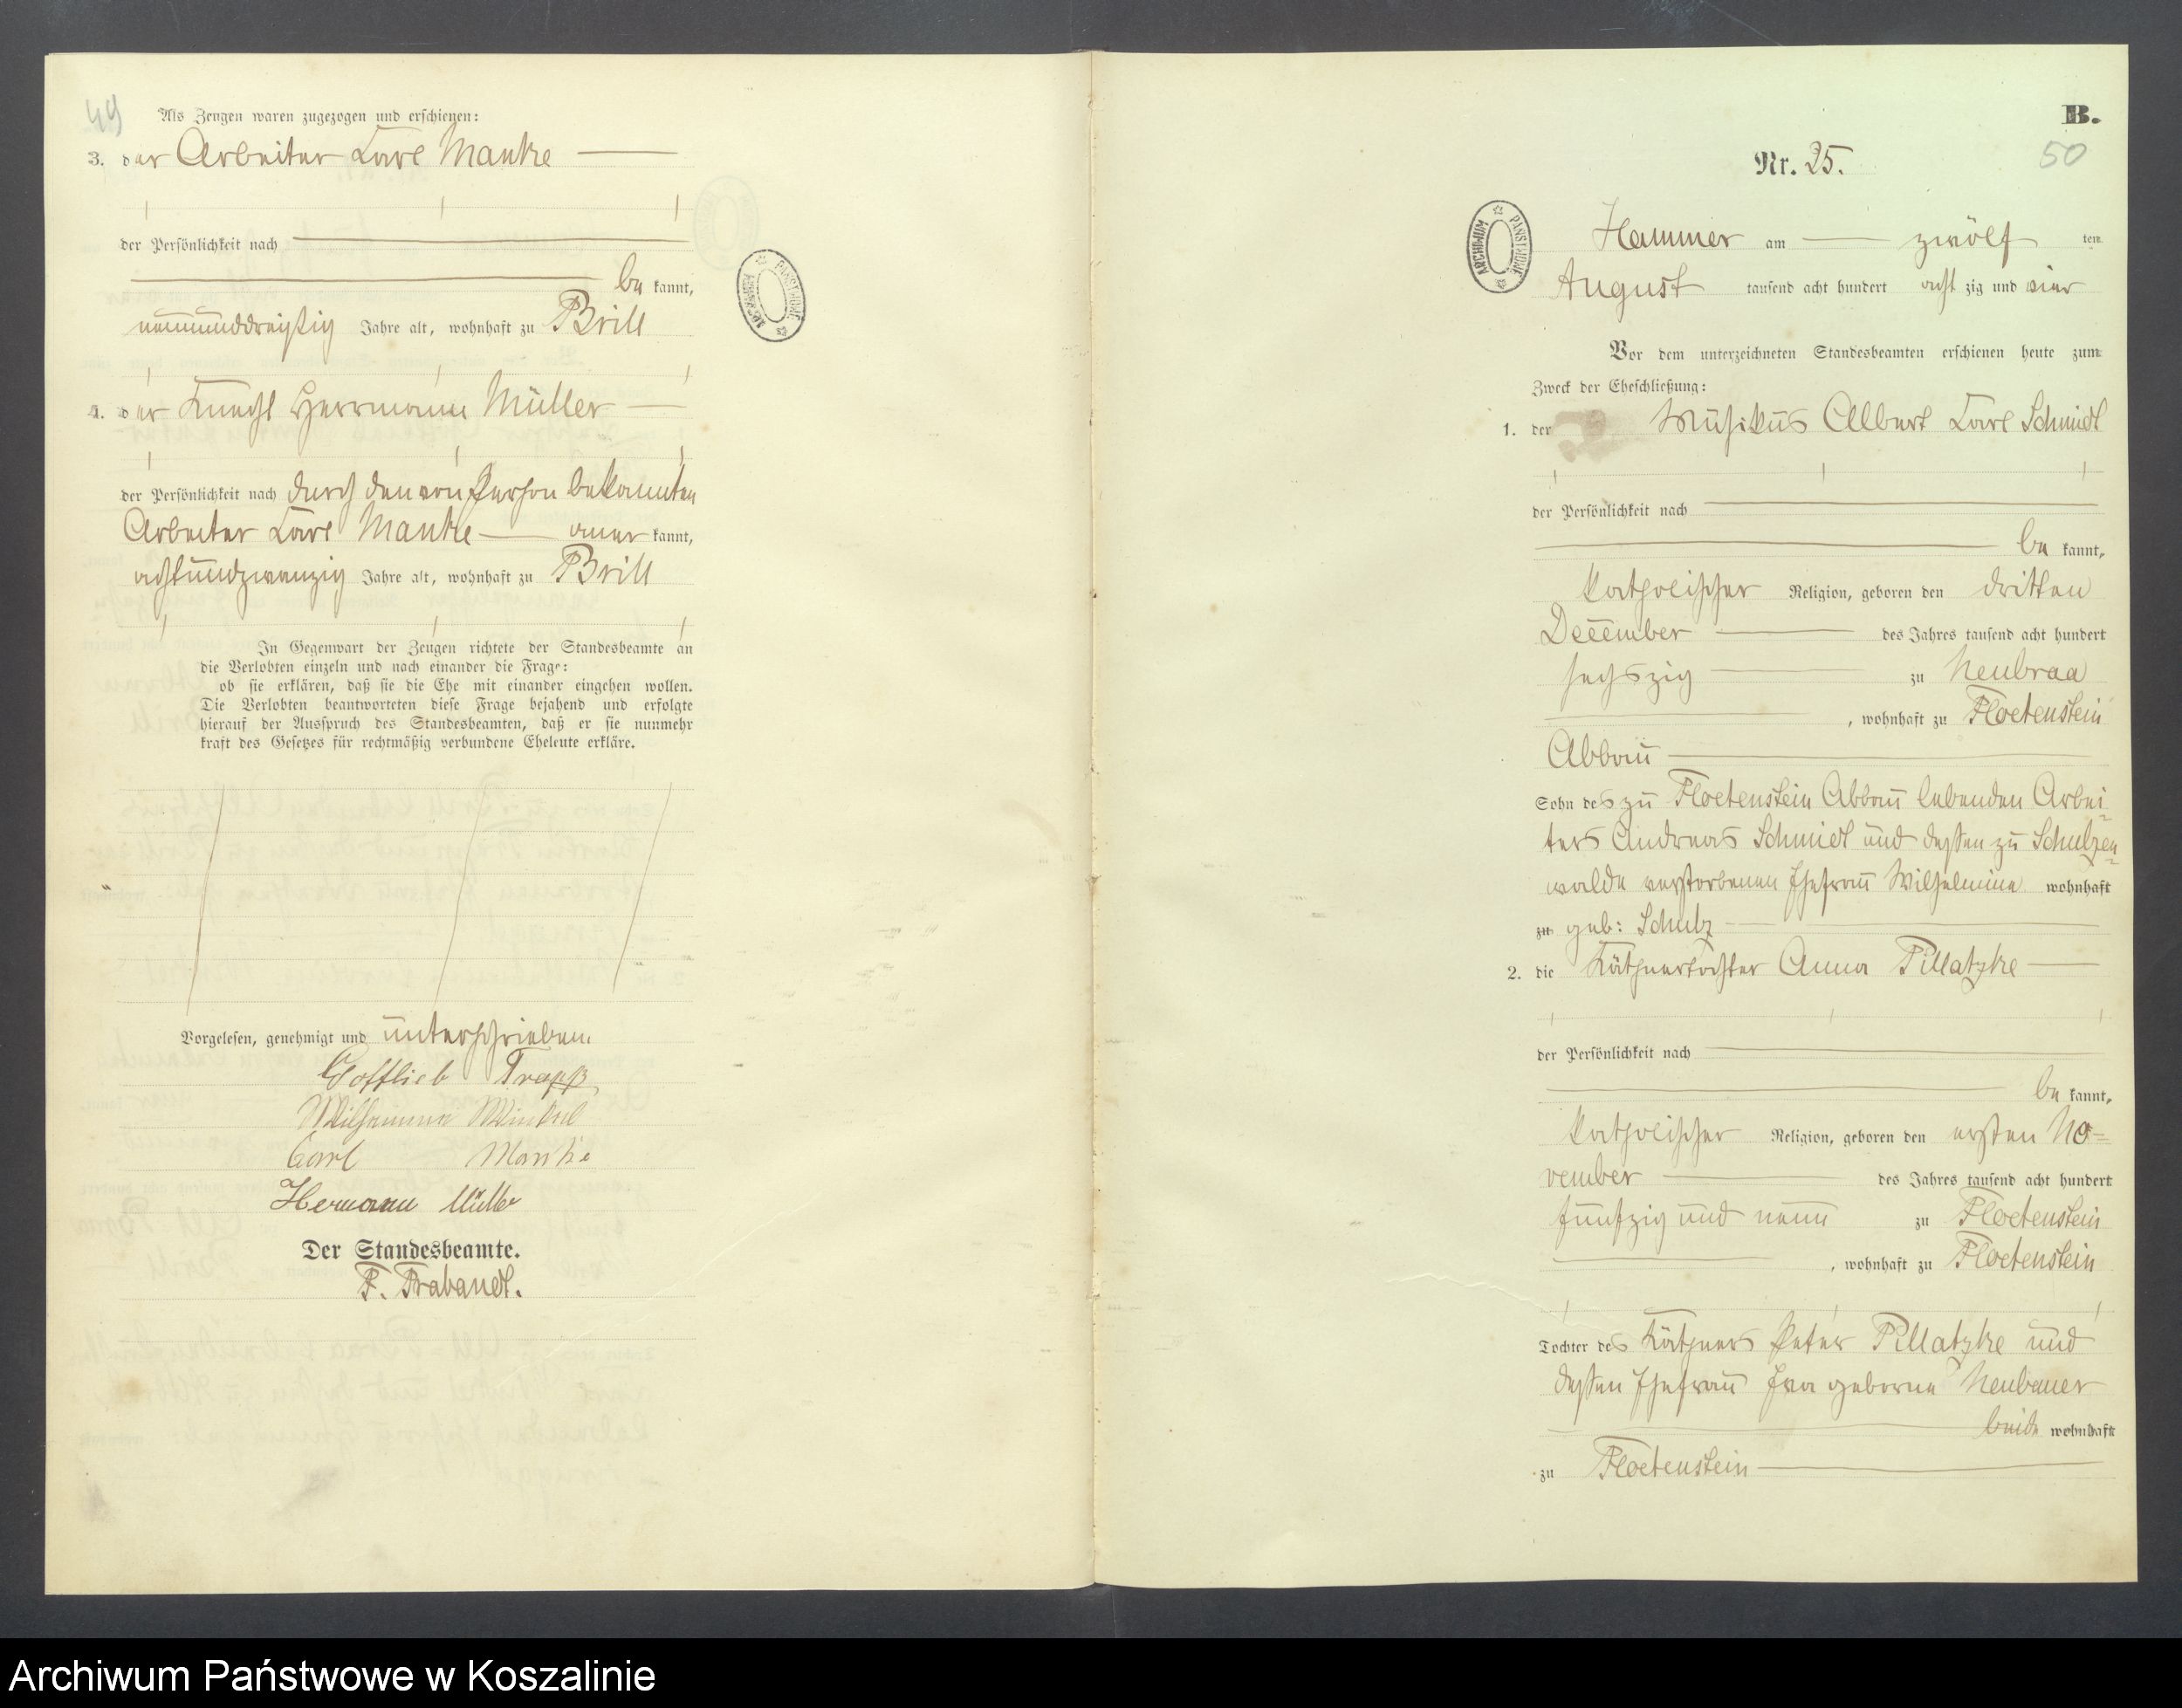 49
Als Zeugen waren zugezogen und erschienen:
3. der Arbeiter Carl Manke
der Persönlichkeit nach
be kannt,
neununddreißig Jahre alt, wohnhaft zu Brill
4. der Knecht Herrmann Müller
der Persönlichkeit nach durch den von Person bekannten
Arbeiter Carl Manke anerkannt,
achtundzwanzig Jahre alt, wohnhaft zu Brill
In Gegenwart der Zeugen richtete der Standesbeamte an
die Verlobten einzeln und nach einander die Frage:
ob sie erklären, daß sie die Ehe mit einander eingehen wollen.
Die Verlobten beantworteten diese Frage bejahend und erfolgte
hierauf der Ausspruch des Standesbeamten, daß er sie nunmehr
kraft des Gesetzes für rechtmäßig verbundene Eheleute erkläre.
Vorgelesen, genehmigt und unterschrieben.
Gottlieb Trapp
Wilhelmine Winkel
Carl Manke
Hermann Müller
Der Standesbeamte.
F. Brabandt.
B.
50
Nr. 25.
Hammer am zwölf ten
August tausend acht hundert acht zig und vier
Vor dem unterzeichneten Standesbeamten erschienen heute zum
Zweck der Eheschließung:
1. der Musikus Albert Carl Schmidt
der Persönlichkeit nach
be kannt,
katholischer Religion, geboren den dritten
December des Jahres tausend acht hundert
sechszig zu Neubraa
, wohnhaft zu Floetenstein
Abbau
Sohn des zu Floetenstein Abbau lebenden Arbei-
ters Andreas Schmidt und dessen zu Schulzen-
walde verstorbenen Ehefrau Wilhelmine wohnhaft
zu geb: Schulz
2. die Käthnertochter Anna Pillatzke
der Persönlichkeit nach
be kannt,
katholischer Religion, geboren den ersten No-
vember des Jahres tausend acht hundert
fünfzig und neun zu Floetenstein
, wohnhaft zu Floetenstein
Tochter des Käthners Peter Pillatzke und
dessen Ehefrau Eva geborne Neubauer
beide wohnhaft
zu Floetenstein
ARCHIWUM PAŃSTWOWE
Archiwum Państwowe w Koszalinie